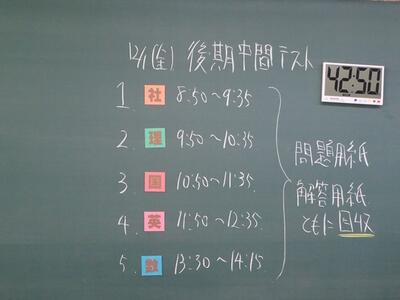 12/1(金) 後期中間テスト
42:50
1 社 8:50~9:35
2. 理 9:50~10:35
3 国 10:50~11:35
4. 英 11:50~12:35
5. 数 13:30~14:15
問題用紙
解答用紙
ともに回収